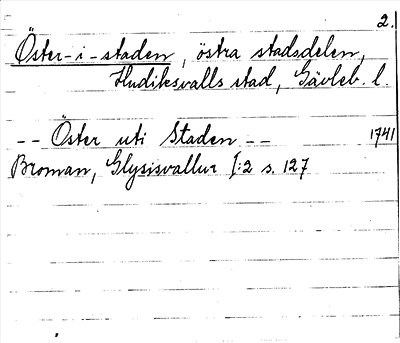 2.
Öster-i-staden, östra stadsdelen,
Hudiksvalls stad, Gävleb. l.
-- Öster uti Staden -- 1741
Broman, Glysisvallur I:2 s. 127